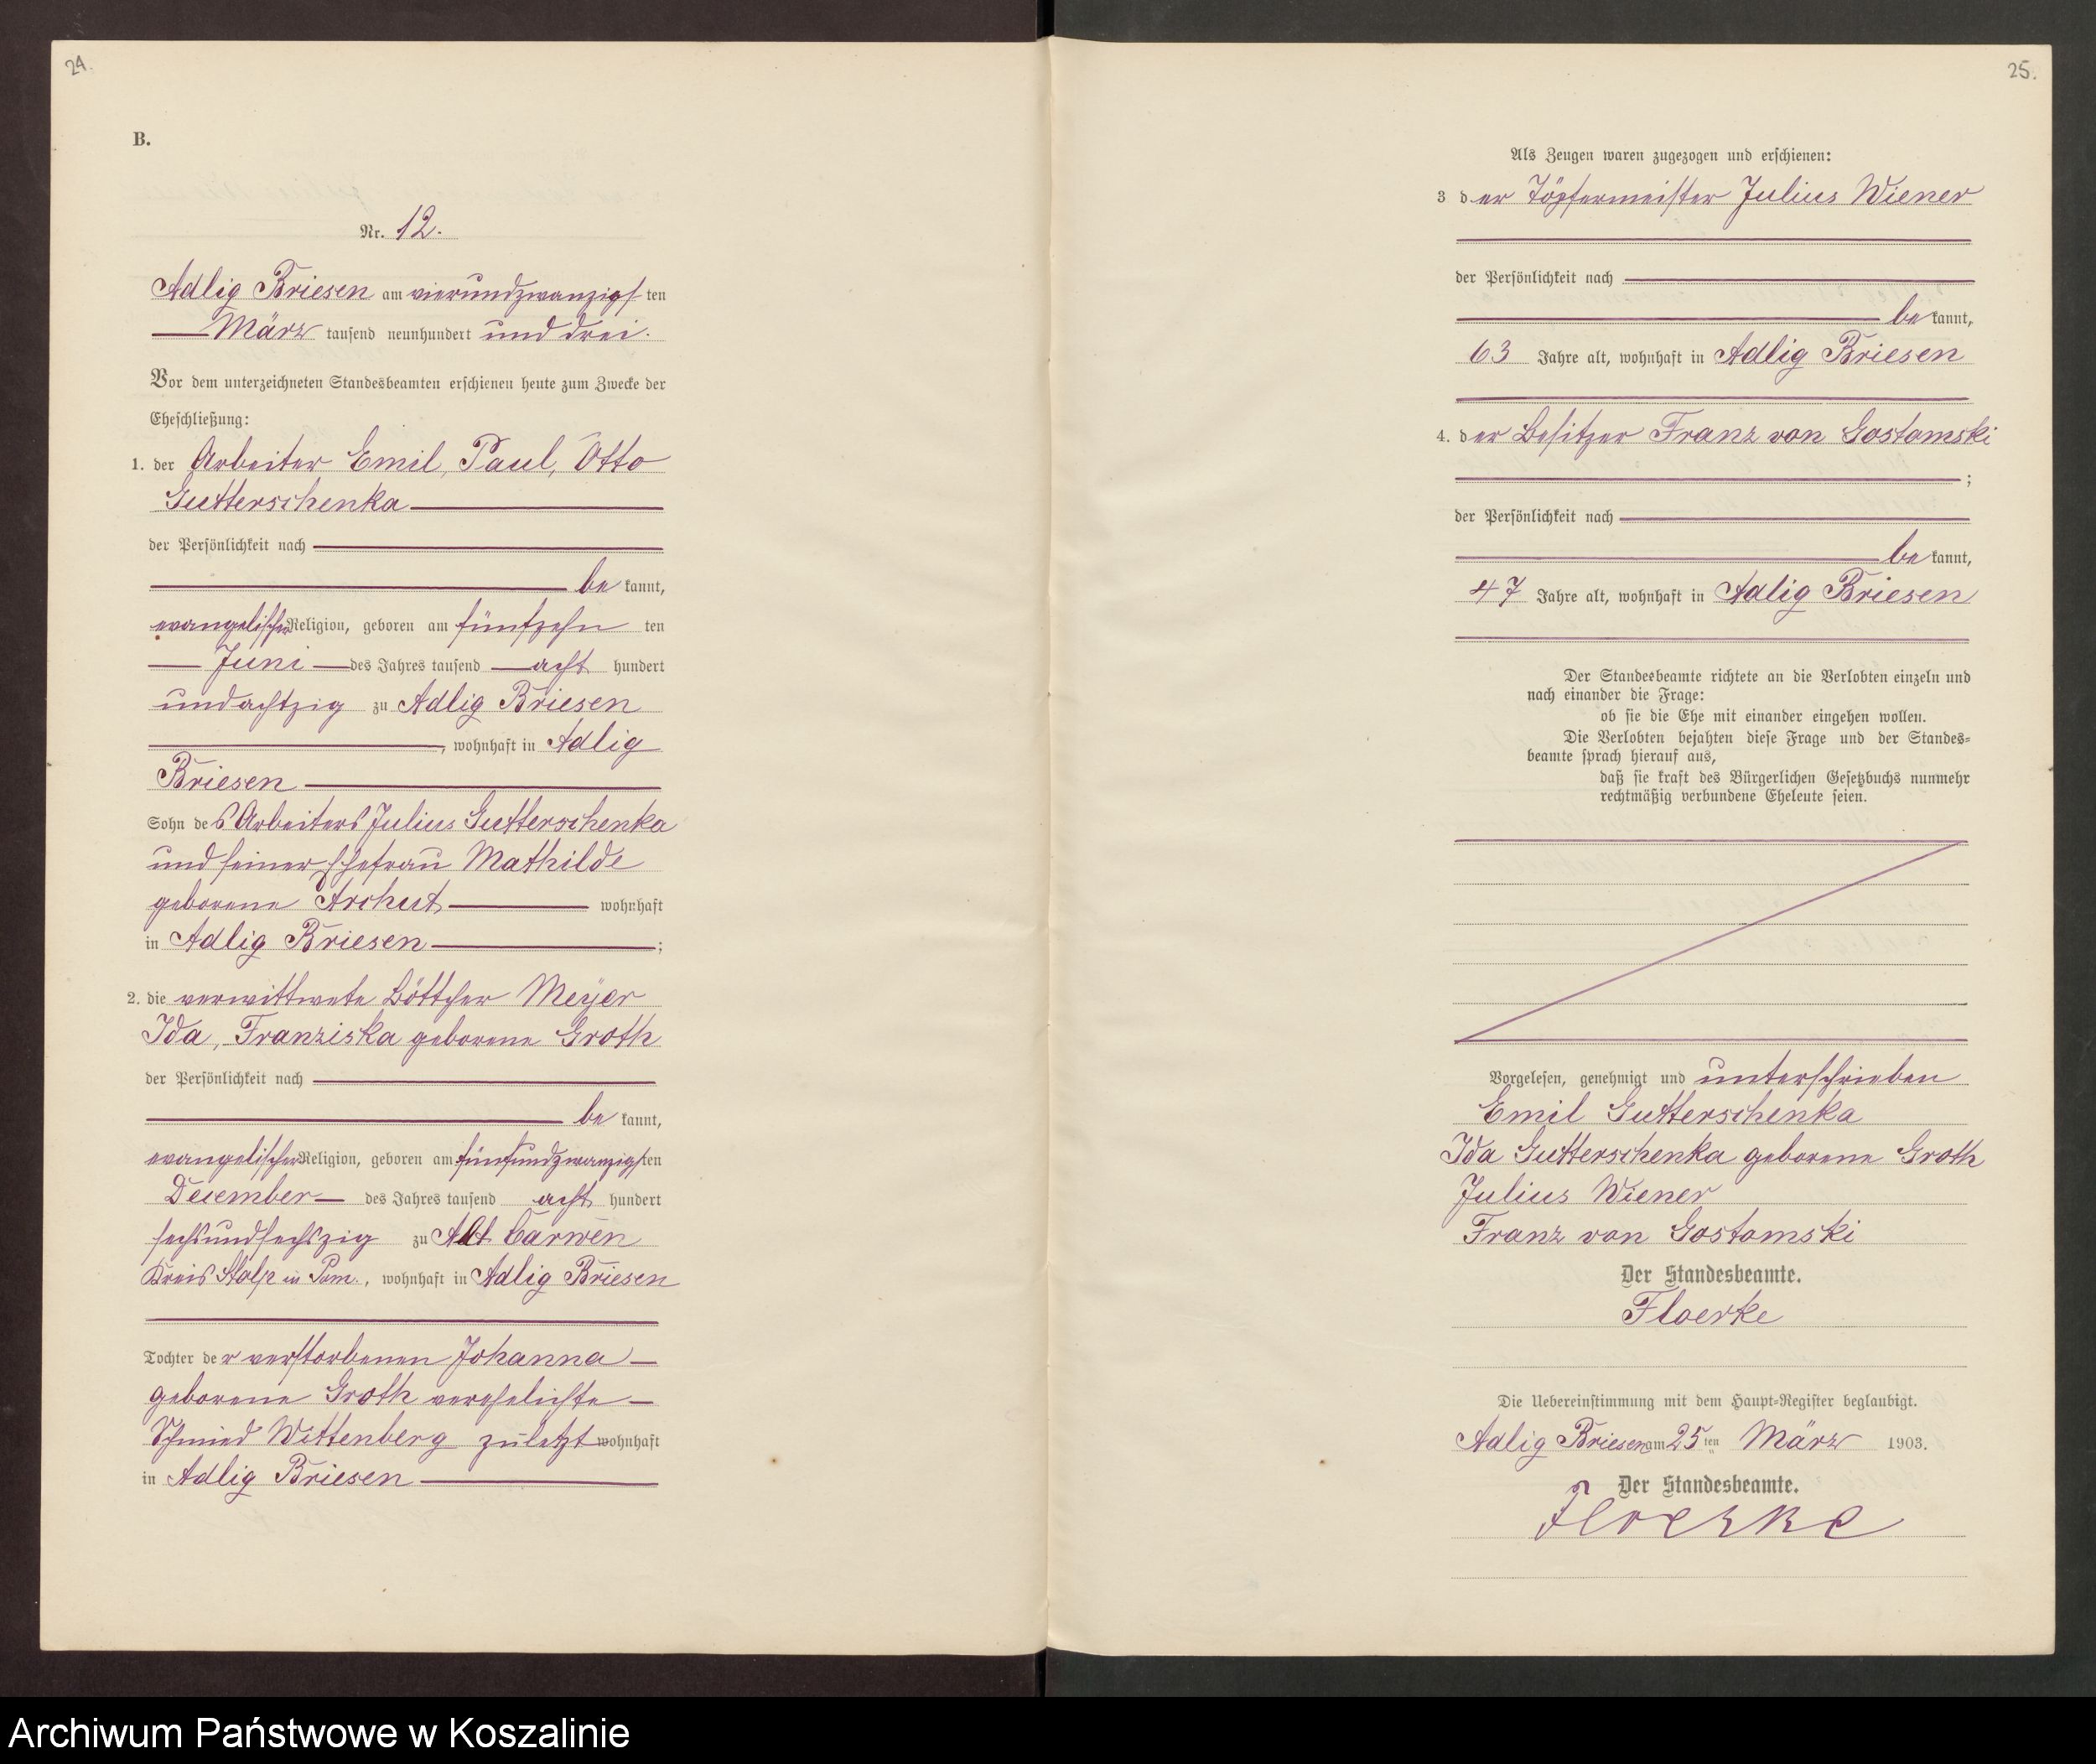 24.
B.
Nr. 12.
Adlig Briesen am vierundzwanzigsten
März tausend neunhundert und drei.
Vor dem unterzeichneten Standesbeamten erschienen heute zum Zwecke der
Eheschließung:
1. der Arbeiter Emil, Paul, Otto
Gutterschenka
der Persönlichkeit nach
be kannt,
evangelischer Religion, geboren am fünfzehn ten
Juni des Jahres tausend acht hundert
undachtzig zu Adlig Briesen
, wohnhaft in Adlig
Briesen
Sohn des Arbeiters Julius Gutterschenka
und seiner Ehefrau Mathilde
geborene Archut wohnhaft
in Adlig Briesen ;
2. die verwittwete Böttcher Meyer
Ida, Franziska geborene Groth
der Persönlichkeit nach
be kannt,
evangelischer Religion, geboren am fünfundzwanzigsten
December des Jahres tausend acht hundert
sechsundsechszig zu Alt Carwen
Kreis Stolp in Pom., wohnhaft in Adlig Briesen
Tochter der verstorbenen Johanna
geborene Groth verehelichte
Schmied Wittenberg zuletzt wohnhaft
in Adlig Briesen
25.
Als Zeugen waren zugezogen und erschienen:
3 der Töpfermeister Julius Wiener
der Persönlichkeit nach
be kannt,
63 Jahre alt, wohnhaft in Adlig Briesen
4. der Besitzer Franz von Gostomski
;
der Persönlichkeit nach
be kannt,
47 Jahre alt, wohnhaft in Adlig Briesen
Der Standesbeamte richtete an die Verlobten einzeln und
nach einander die Frage:
ob sie die Ehe mit einander eingehen wollen.
Die Verlobten bejahten diese Frage und der Standes=
beamte sprach hierauf aus,
daß sie kraft des Bürgerlichen Gesetzbuchs nunmehr
rechtmäßig verbundene Eheleute seien.
Vorgelesen, genehmigt und unterschrieben
Emil Gutterschenka
Ida Gutterschenka geborene Groth
Julius Wiener
Franz von Gostomski
Der Standesbeamte.
Floerke
Die Uebereinstimmung mit dem Haupt=Register beglaubigt.
Adlig Briesen am 25 ten März 1903.
Der Standesbeamte.
Floerke
Archiwum Państwowe w Koszalinie